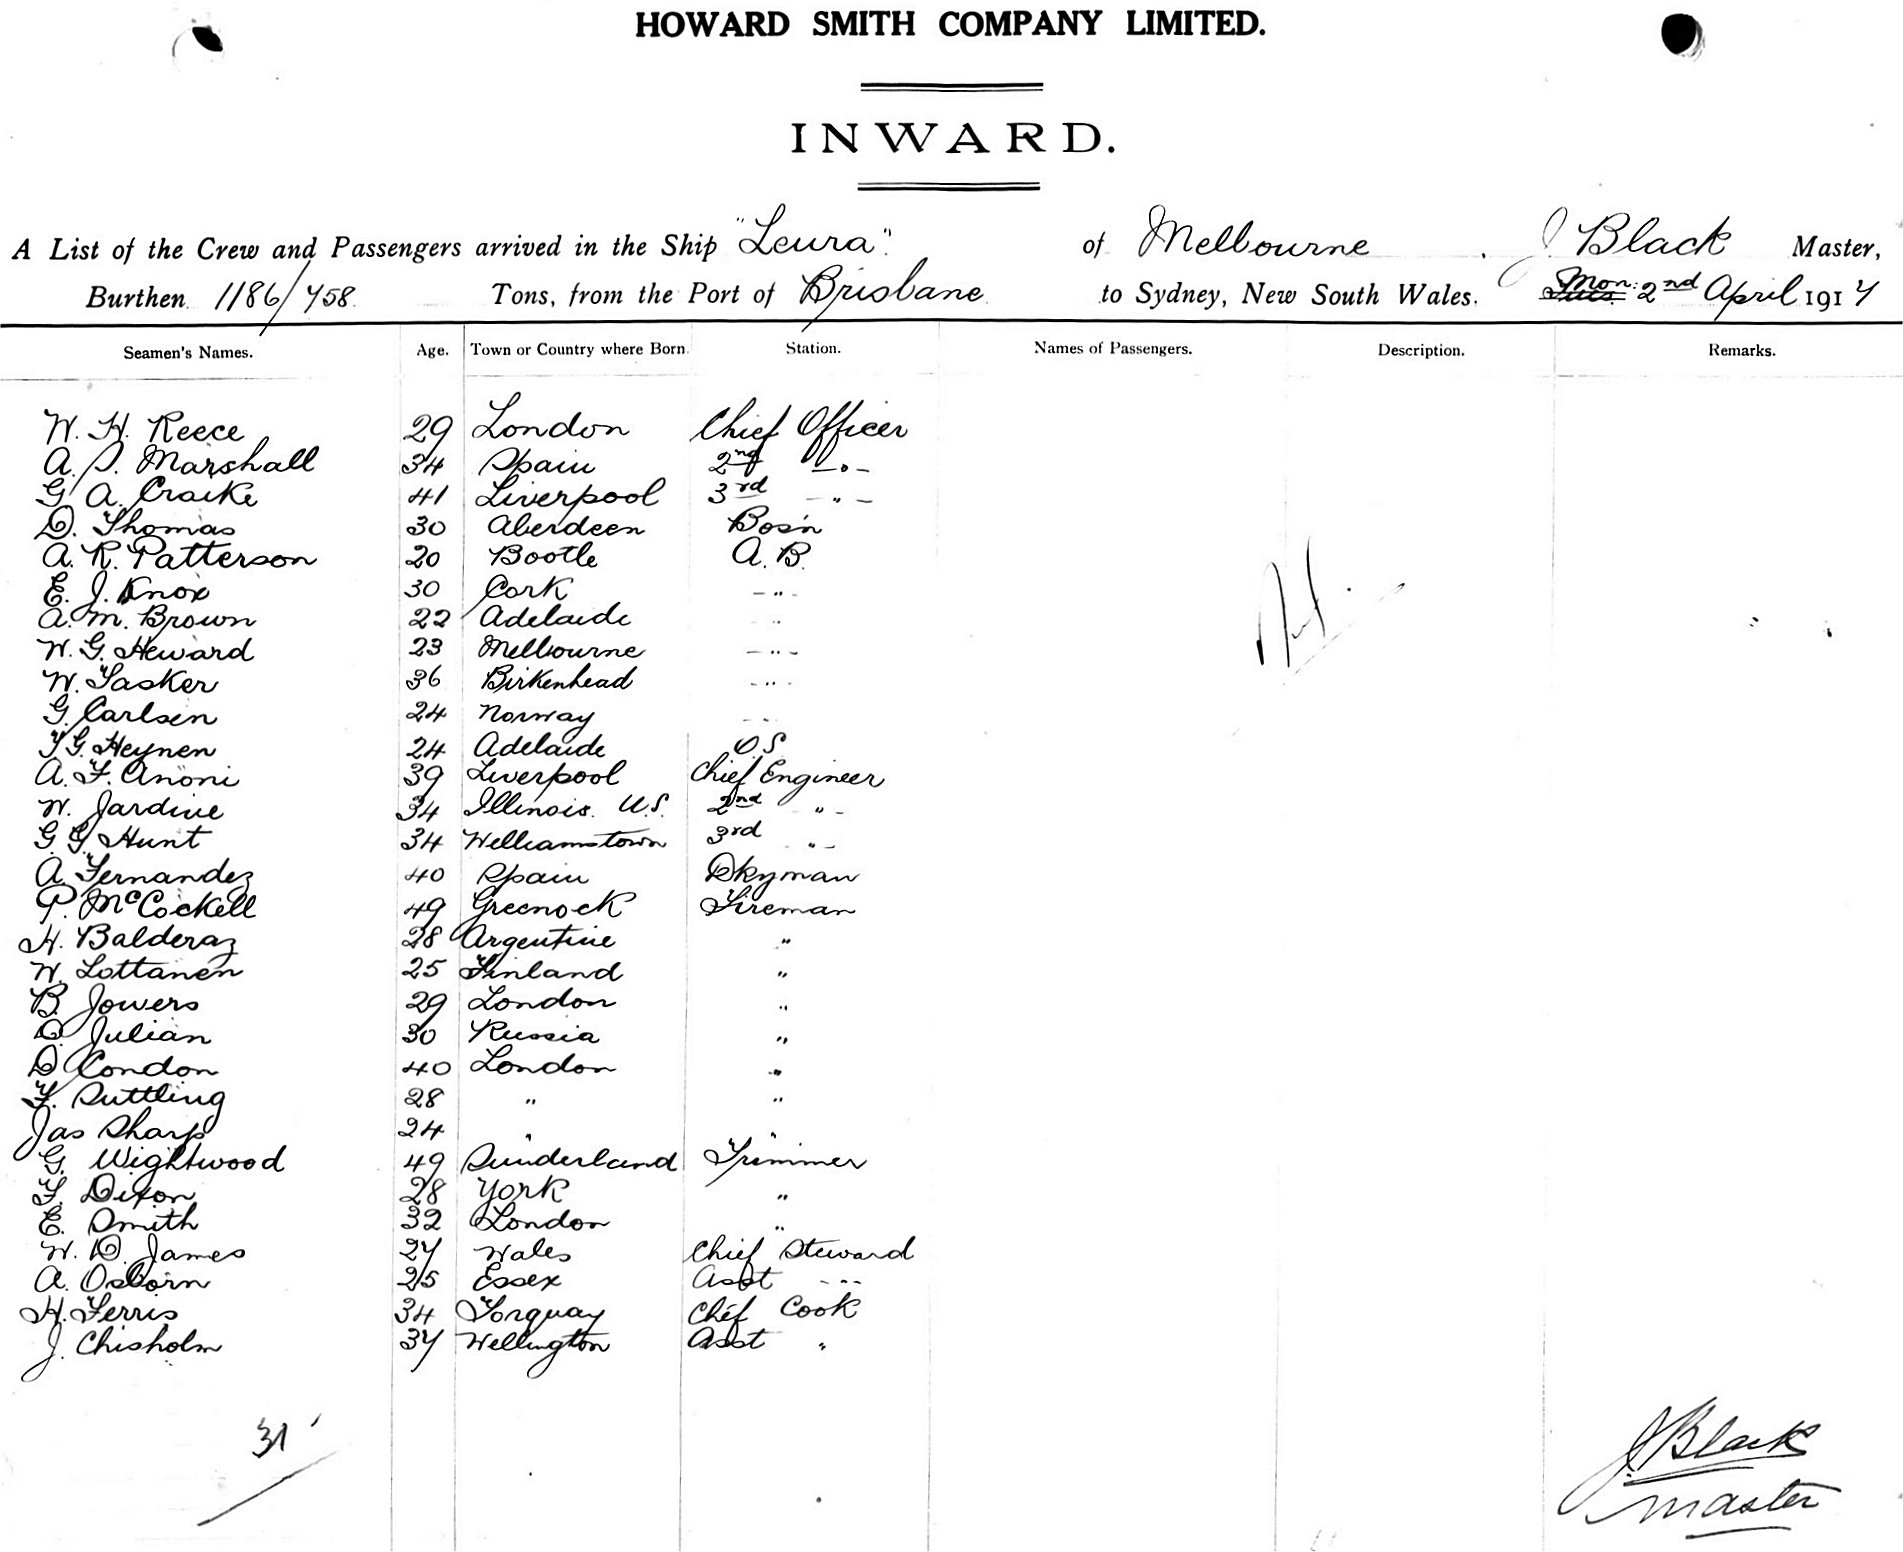 HOWARD SMITH COMPANY LIMITED.
INWARD.
A List of the Crew and Passengers arrived in the Ship "Leura" of Melbourne. J Black Master,
Burthen 1186/758 Tons, from the Port of Brisbane to Sydney, New South Wales. Mon: 2nd April 1917
Seamen's Names. Age. Town or Country where Born. Station. Names of Passengers. Description. Remarks.
W. H. Reece 29 London Chief Officer
A. S. Marshall 34 Spain 2nd -"-
G. A. Craike 41 Liverpool 3rd -"-
D. Thomas 30 Aberdeen Bosn
A. R. Patterson 20 Bootle A. B.
E. J. Knox 30 Cork -"-
A. M. Brown 22 Adelaide "
W. G. Heward 23 Melbourne -"-
W. Tasker 36 Birkenhead -"-
G. Carlsen 24 Norway -"-
T G. Heynen 24 Adelaide O.S
A. F. Anoni 39 Liverpool Chief Engineer
W. Jardine 34 Illinois. U.S. 2nd "-
G. G. Hunt 34 Williamstown 3rd "-
A. Fernandez 40 Spain Dkyman
P. McCockell 49 Greenock Fireman
H. Balderaz 28 Argentine "
W. Lottanen 25 Finland "
B. Jowers 29 London "
D. Julian 30 Russia "
D Condon 40 London "
F. Suttling 28 " "
Jas Sharp 24 " "
G. Wightwood 49 Sunderland Trimmer
F. Dixon 28 York "
E. Smith 32 London "
W. D. James 27 Wales Chief Steward
A. Osborn 25 Essex Asst -"-
H. Ferris 34 Torquay Chef Cook
J. Chisholm 37 Wellington Asst "
31
J. Black
Master